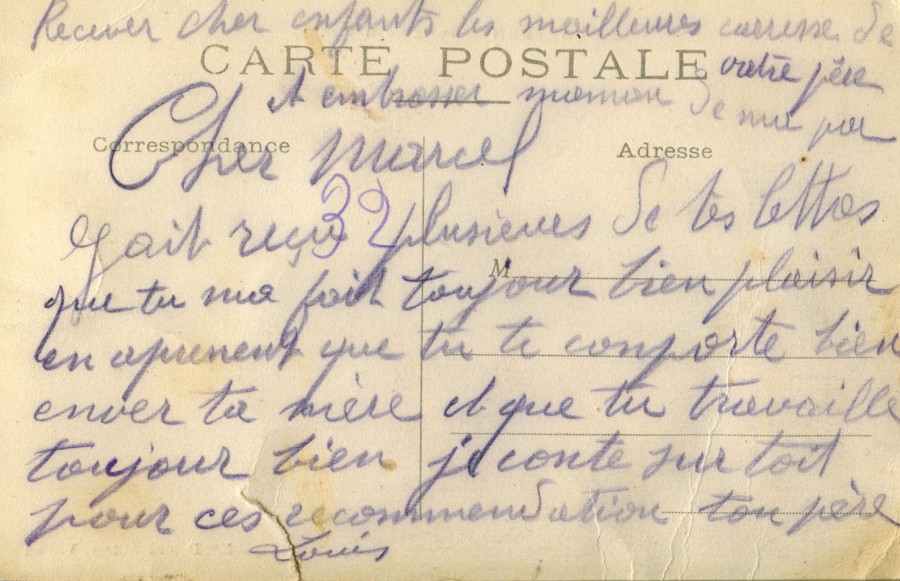 Recever cher enfants les meilleures caresse de
votre père
CARTE POSTALE
et embrasser maman de ma par
Correspondance
Adresse
Cher Marcel
39
J'ait reçu plusieures de tes lettres
M
que tu ma fait toujour bien plaisir
en aprenent que tu te comporte bien
enver ta mère et que tu travaille
toujour bien je conte sur toit
pour ces recommendation ton père
Louis